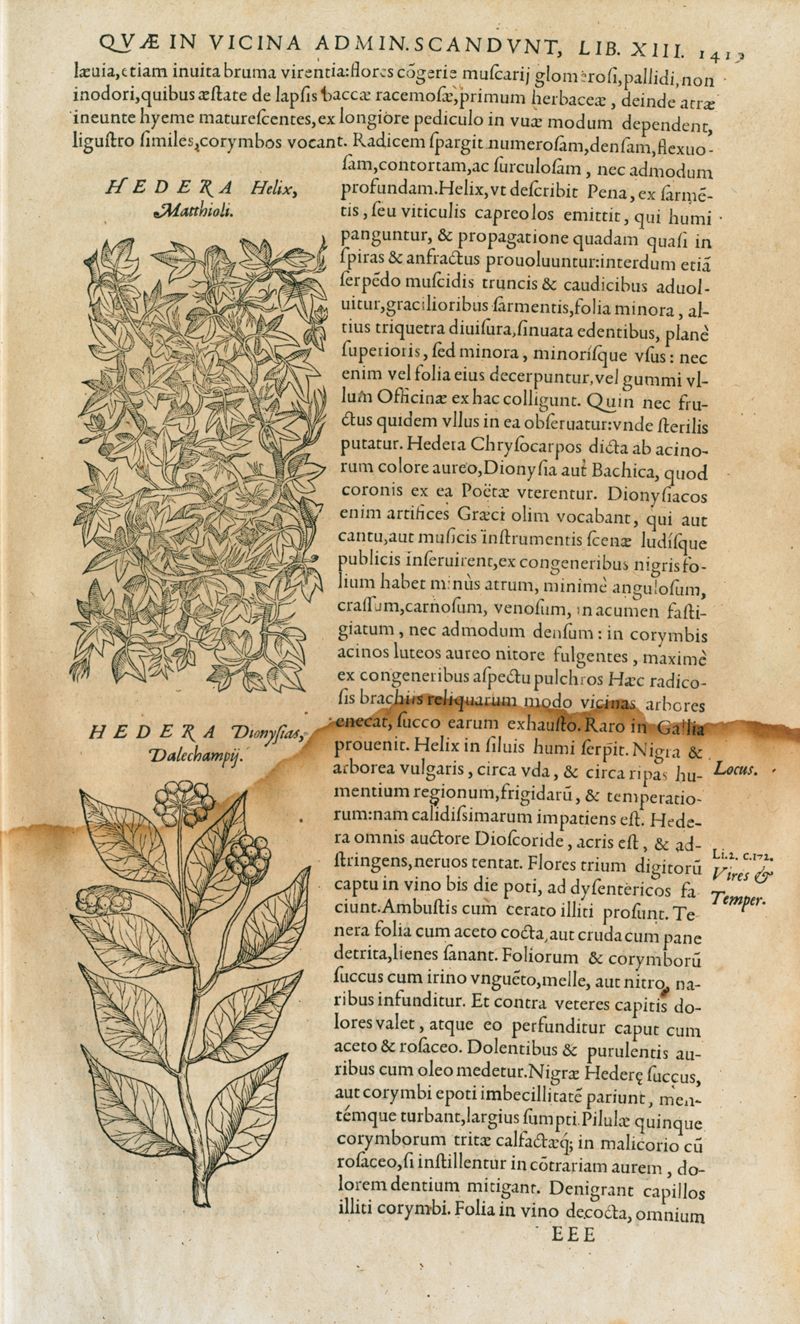 QVÆ IN VICINA ADMIN. SCANDVNT, LIB. XIII. 1419
læuia, etiam inuita bruma virentia: flores cõgerie muſcarij glomeroſi, pallidi, non
inodori, quibus æſtate de lapſis baccæ racemoſæ, primum herbaceæ, deinde atræ
ineunte hyeme matureſcentes, ex longiore pediculo in vuæ modum dependent,
liguſtro ſimiles, corymbos vocant. Radicem ſpargit numeroſam, denſam, flexuo-
ſam, contortam, ac ſurculoſam, nec admodum
HEDERA Helix,
Matthioli.
profundam. Helix, vt deſcribit Pena, ex ſarmē-
tis, ſeu viticulis capreolos emittit, qui humi
panguntur, & propagatione quadam quaſi in
ſpiras & anfractus prouoluuntur: interdum etiã
ſerpēdo muſcidis truncis & caudicibus aduol-
uitur, gracilioribus ſarmentis, folia minora, al-
tius triquetra diuiſura, ſinuata edentibus, planè
ſuperioris, ſed minora, minoriſque vſus: nec
enim vel folia eius decerpuntur, vel gummi vl-
lum Officinæ ex hac colligunt. Quin nec fru-
ctus quidem vllus in ea obſeruatur: vnde ſterilis
putatur. Hedera Chryſocarpos dicta ab acino-
rum colore aureo, Dionyſia aut Bachica, quod
coronis ex ea Poëtæ vterentur. Dionyſiacos
enim artifices Græci olim vocabant, qui aut
cantu, aut muſicis inſtrumentis ſcenæ ludiſque
publicis inſeruirent, ex congeneribus nigris fo-
lium habet minùs atrum, minimè anguloſum,
craſſum, carnoſum, venoſum, in acumen faſti-
giatum, nec admodum denſum: in corymbis
acinos luteos aureo nitore fulgentes, maximè
ex congeneribus aſpectu pulchros Hæc radico-
ſis brachiis reliquarum modo vicinas arbores
HEDERA Dionyſias,
Dalechampij.
enecat, ſucco earum exhauſto. Raro in Gallia
prouenit. Helix in ſiluis humi ſerpit. Nigra &
arborea vulgaris, circa vda, & circa ripas hu-
Locus.
mentium regionum, frigidarũ, & temperatio-
rum: nam calidiſſimarum impatiens eſt. Hede-
ra omnis auctore Dioſcoride, acris eſt, & ad-
ſtringens, neruos tentat. Flores trium digitorũ
Li. 2. c. 172.
Vires &
Temper.
captu in vino bis die poti, ad dyſentericos fa
ciunt. Ambuſtis cum cerato illiti proſunt. Te
nera folia cum aceto cocta, aut cruda cum pane
detrita, lienes ſanant. Foliorum & corymborũ
ſuccus cum irino vnguēto, melle, aut nitro, na-
ribus infunditur. Et contra veteres capitis do-
lores valet, atque eo perfunditur caput cum
aceto & roſaceo. Dolentibus & purulentis au-
ribus cum oleo medetur. Nigræ Hederę ſuccus,
aut corymbi epoti imbecillitatē pariunt, men-
témque turbant, largius ſumpti. Pilulæ quinque
corymborum tritæ calfactæq; in malicorio cũ
roſaceo, ſi inſtillentur in cõtrariam aurem, do-
lorem dentium mitigant. Denigrant capillos
illiti corymbi. Folia in vino decocta, omnium
EEE